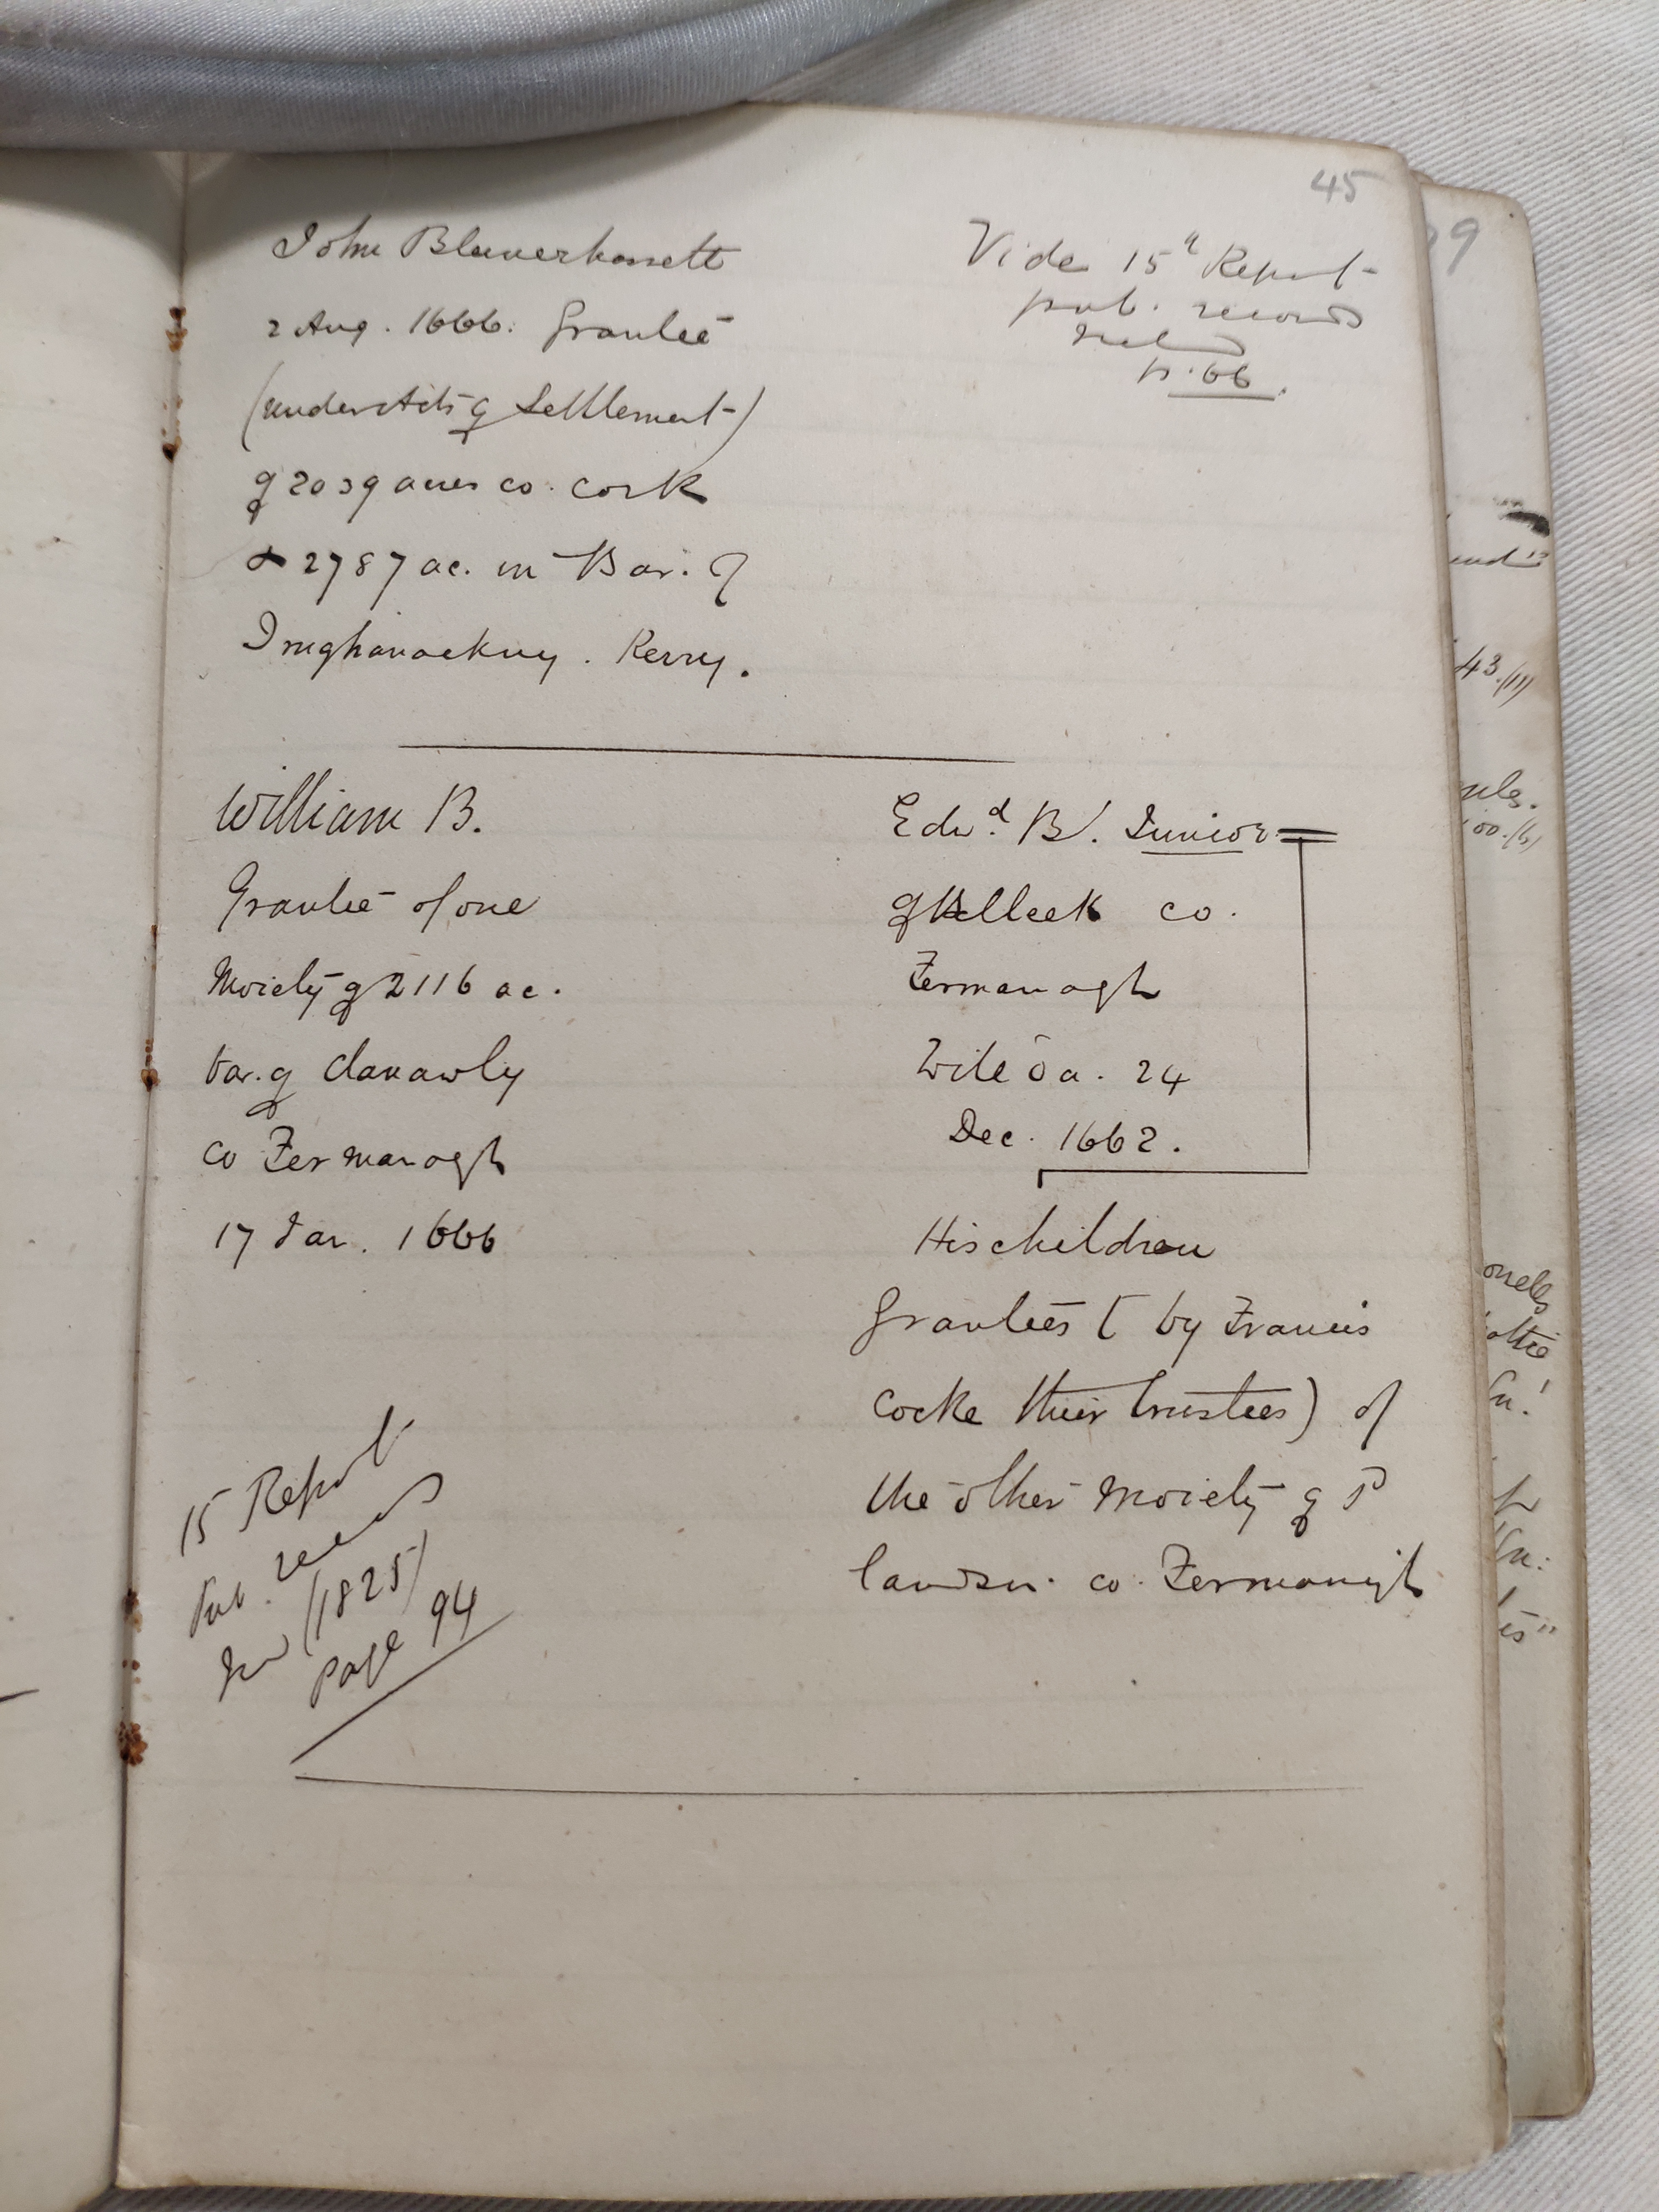 45
John Blennerhassett
2 Aug. 1666. Grantee
(under Acts of Settlement)
of 2039 acres co. Cork
& 2787 ac. in Bar. of
Trughanackny. Kerry.
Vide 15th Report
pub. records
Ireland
p. 66.
William B.
Grantee of one
Moiety of 2116 ac.
bar. of Clanawly
co Fermanagh
17 Jan. 1666
15 Report
Pub. records
Ird (1825)
page 94
Edwd. B. Junior
of Belleek co.
Fermanagh
Will da. 24
Dec. 1662.
His children
Grantees (by Francis
Cocke their trustees) of
the other moiety of sd
lands in co. Fermanagh
99
43.(11)